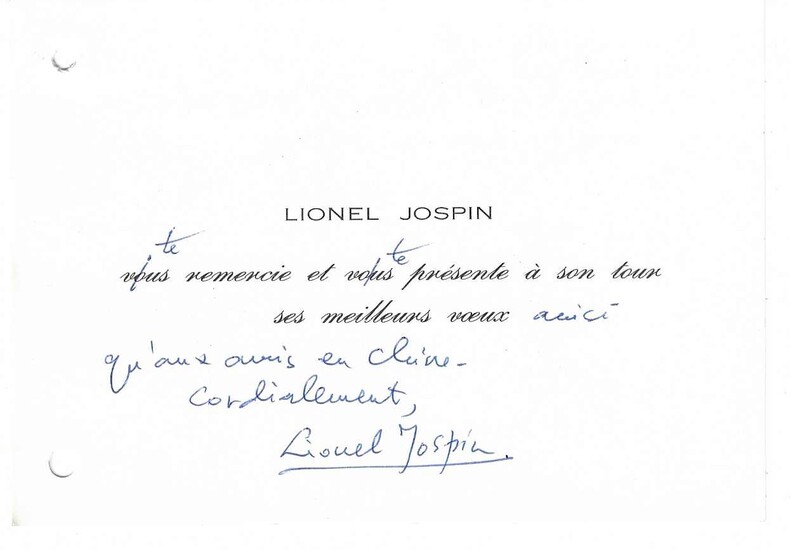 LIONEL JOSPIN
te te
vous remercie et vous présente à son tour
ses meilleurs vœux ainsi
qu'aux amis en Chine.
Cordialement,
Lionel Jospin.